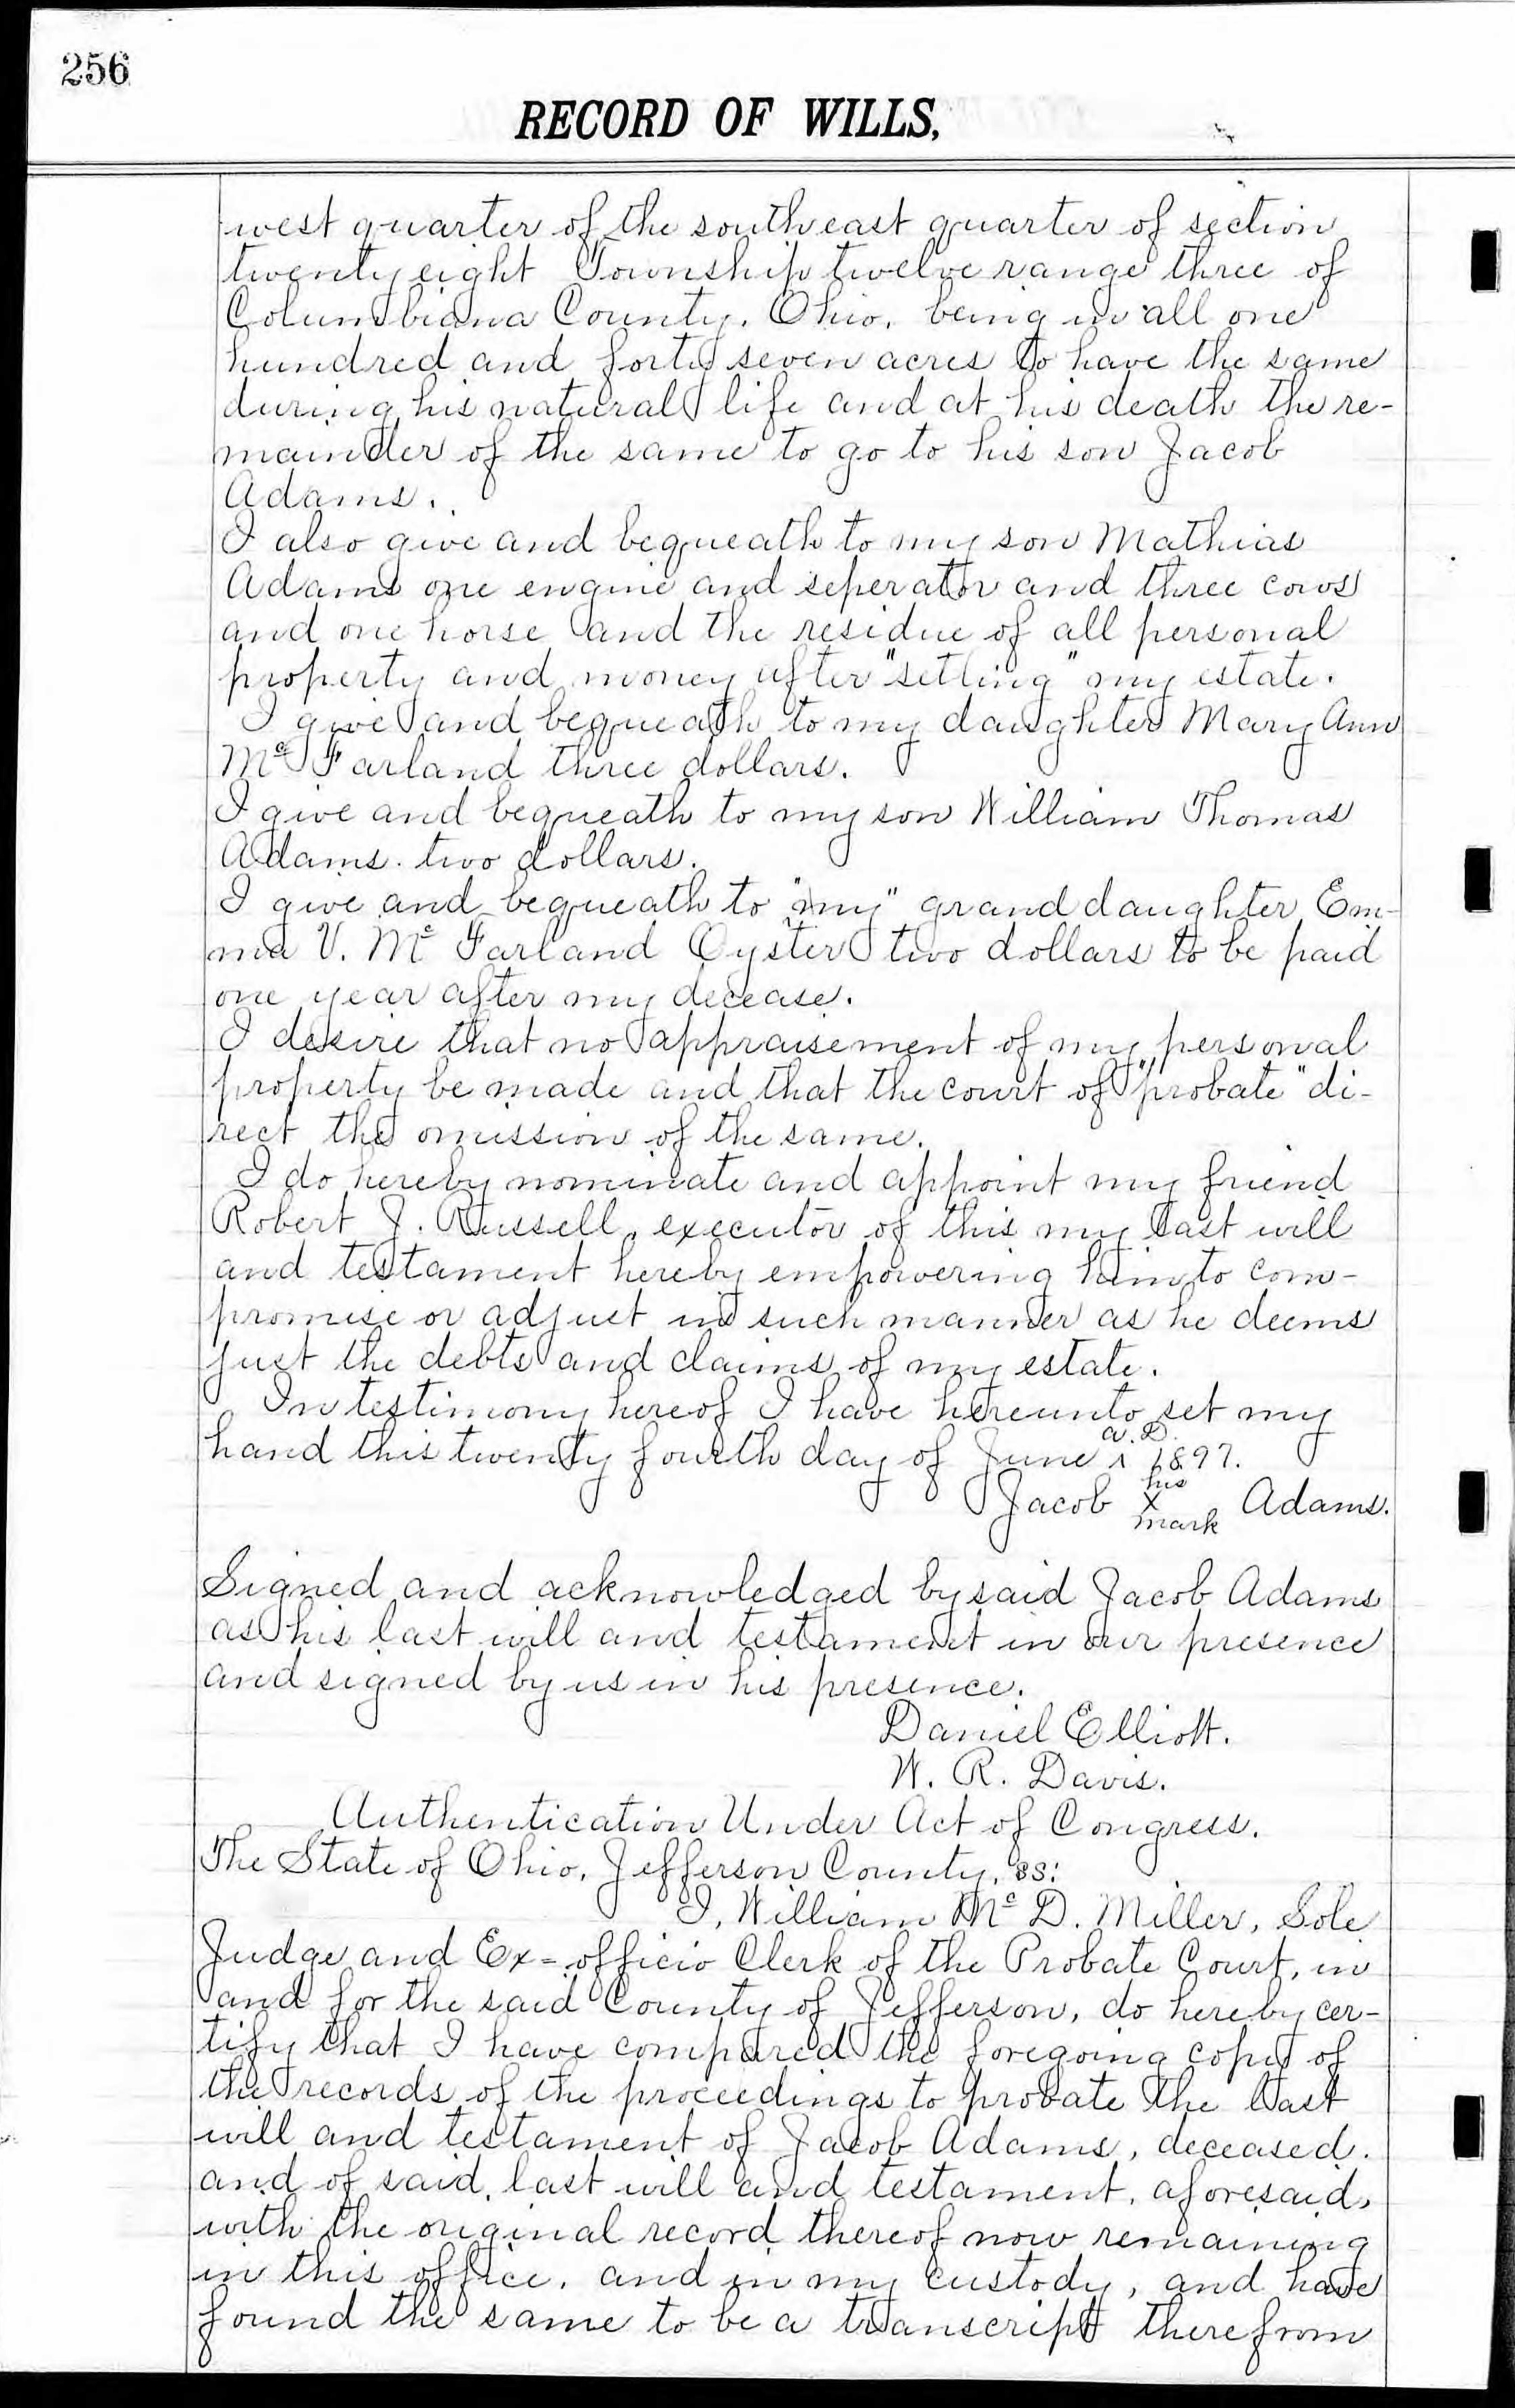 256
RECORD OF WILLS,
west quarter of the south east quarter of section
twenty eight Township twelve range three of
Columbiana County, Ohio, being in all one
hundred and forty seven acres to have the same
during his natural life and at his death the re-
mainder of the same to go to his son Jacob
Adams.
I also give and bequeath to my son Mathias
Adams one engine and seperator and three cows
and one horse and the residue of all personal
property and money after "setling" my estate.
I give and bequeath to my daughter Mary Ann
Mc Farland three dollars.
I give and bequeath to my son William Thomas
Adams. two dollars.
I give and bequeath to "my" grand daughter Em-
ma V. Mc Farland Oyster two dollars to be paid
one year after my decease.
I desire that no appraisement of my personal
property be made and that the court of "probate" di-
rect the omission of the same.
I do hereby nominate and appoint my friend
Robert J. Russell, executor of this my last will
and testament hereby empowering him to com-
promise or adjust in such manner as he deems
just the debts and claims of my estate.
In testimony hereof I have hereunto set my
hand this twenty fourth day of June ^ a. D. 1897.
Jacob his X mark Adams.
Signed and acknowledged by said Jacob Adams
as his last will and testament in our presence
and signed by us in his presence.
Daniel Elliott.
W. R. Davis.
Authentication Under Act of Congress.
The State of Ohio, Jefferson County, ss:
I, William Mc D. Miller, Sole
Judge and Ex=officio Clerk of the Probate Court, in
and for the said County of Jefferson, do hereby cer-
tify that I have compared the foregoing copy of
the records of the proceedings to probate the last
will and testament of Jacob Adams, deceased.
and of said, last will and testament, aforesaid,
with the original record thereof now remaining
in this office, and in my custody, and have
found the same to be a transcript therefrom